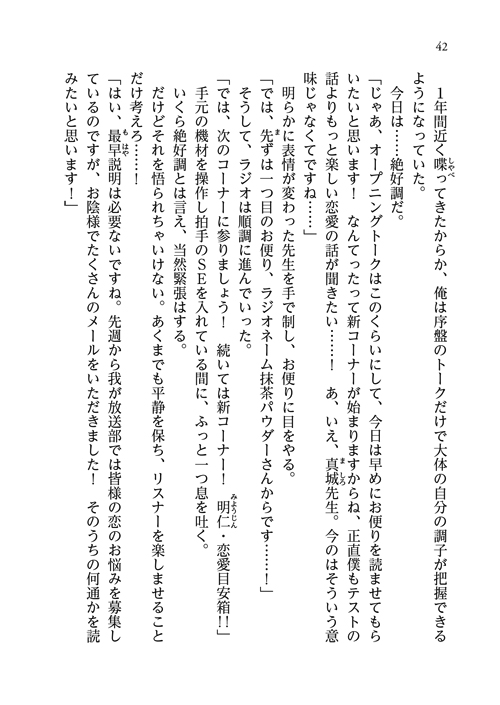 42
１年間近く喋ってきたからか、俺は序盤のトークだけで大体の自分の調子が把握できる
ようになっていた。
今日は……絶好調だ。
「じゃあ、オープニングトークはこのくらいにして、今日は早めにお便りを読ませてもら
いたいと思います！　なんてったって新コーナーが始まりますからね、正直僕もテストの
話よりもっと楽しい恋愛の話が聞きたい……！　あ、いえ、真城先生。今のはそういう意
味じゃなくてですね……」
明らかに表情が変わった先生を手で制し、お便りに目をやる。
「では、先ずは一つ目のお便り、ラジオネーム抹茶パウダーさんからです……！」
そうして、ラジオは順調に進んでいった。
「では、次のコーナーに参りましょう！　続いては新コーナー！　明仁・恋愛目安箱!!」
手元の機材を操作し拍手のＳＥを入れている間に、ふっと一つ息を吐く。
いくら絶好調とは言え、当然緊張はする。
だけどそれを悟られちゃいけない。あくまでも平静を保ち、リスナーを楽しませること
だけ考えろ……！
「はい、最早説明は必要ないですね。先週から我が放送部では皆様の恋のお悩みを募集し
ているのですが、お陰様でたくさんのメールをいただきました！　そのうちの何通かを読
みたいと思います！」